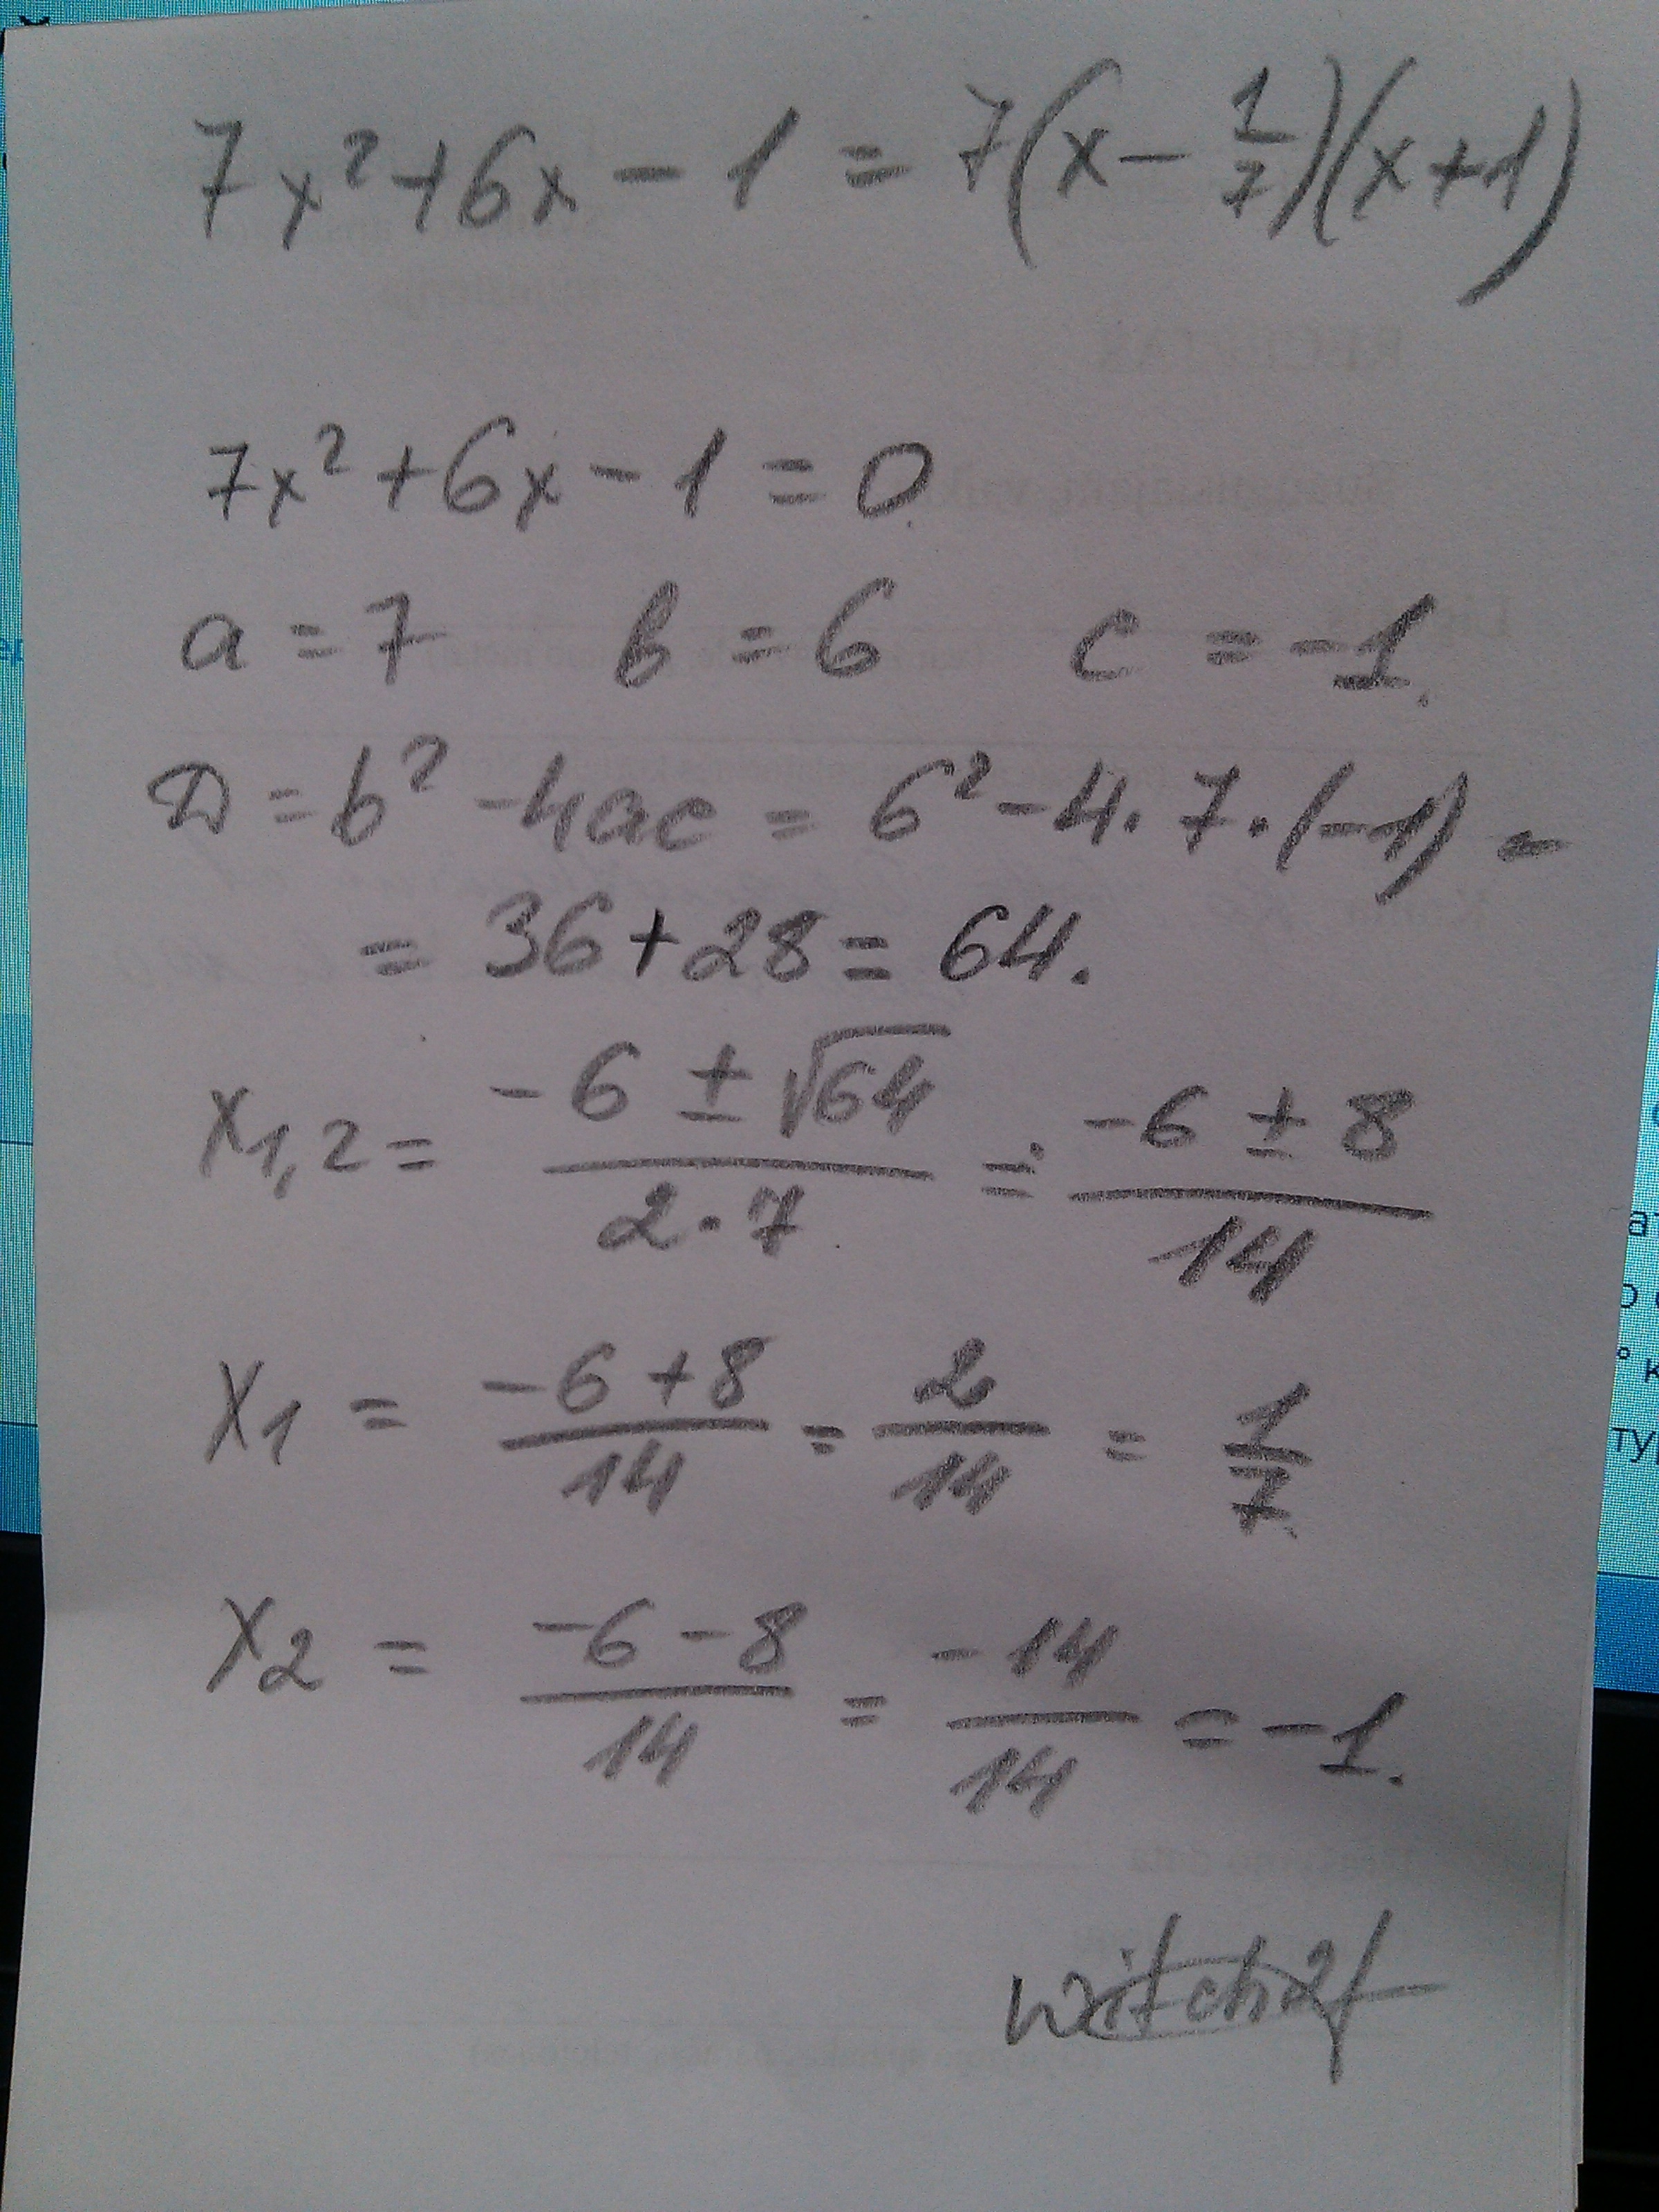 7x² + 6x - 1 = 7(x - 1/7)(x + 1)
7x² + 6x - 1 = 0
a = 7 b = 6 c = -1.
D = b² - 4ac = 6² - 4 · 7 · (-1) =
= 36 + 28 = 64.
x₁,₂ = (-6 ± √64)/(2 · 7) = (-6 ± 8)/14
x₁ = (-6 + 8)/14 = 2/14 = 1/7
x₂ = (-6 - 8)/14 = -14/14 = -1.